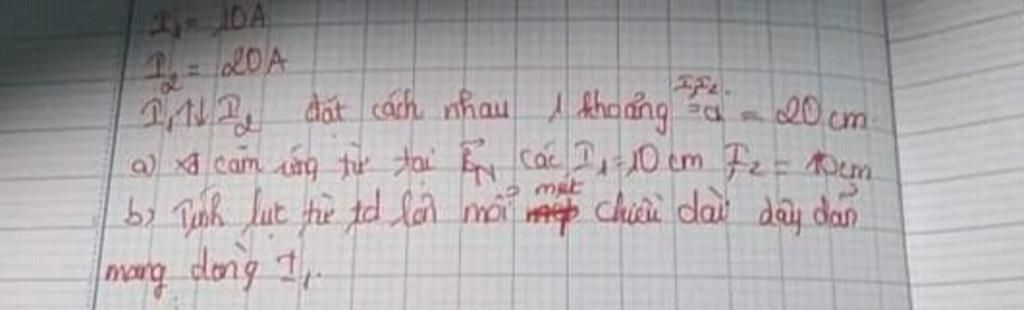 I₁ = 10A
I₂ = 20A
I₁↑↓I₂ đặt cách nhau 1 khoảng I₁I₂ = a = 20 cm
a) xđ cảm ứng từ tại N các I₁ = 10 cm I₂ = 10cm
b) Tính lực từ td lên mỗi mét chiều dài dây dẫn
mang dòng I₁.